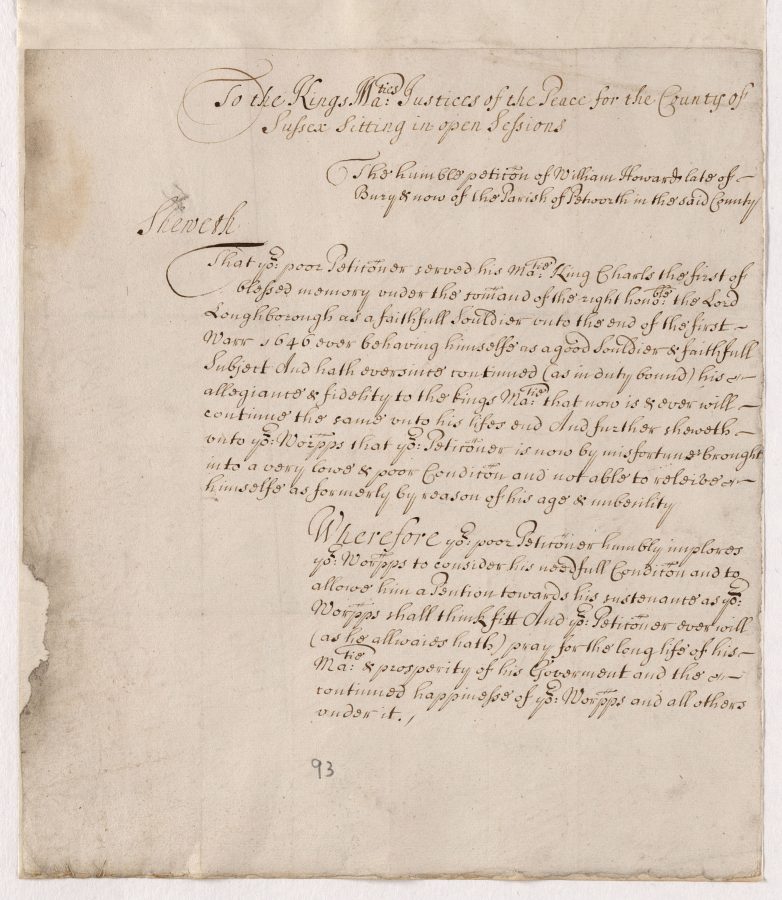 To the Kings Ma:ties Justices of the Peace for the County of
Sussex Sitting in open Sessions
The humble peticõn of William Howard late of
Bury & now of the Parish of Petworth in the said County
Sheweth
That yo:r poor Peticõner served his Ma:tie King Charls the first of
blessed memory vnder the com̃and of the right hon:ble the Lord
Loughborough as a faithfull Souldier vnto the end of the first
Warr 1646 ever behaving himselfe as a good Souldier & faithfull
Subject And hath eversince continued (as in duty bound) his
allegiance & fidelity to the kings Ma:tie that now is & ever will
continue the same vnto his lifes end And further sheweth
vnto yo:r Worpps that yo:r Peticõner is now by misfortune brought
into a very lowe & poor Condicõn and not able to releive
himselfe as formerly by reason of his age & imbecility
Wherefore yo:r poor Peticõner humbly implores
yo:r Worpps to consider his needfull Condicõn and to
allowe him a Pention towards his sustenance as yo:r
Worpps shall think fitt And yo:r Peticõner ever will
(as he allwaies hath) pray for the long life of his
Ma:tie & prosperity of his Goverment and the
continued happinesse of yo:r Worpps and all others
vnder it./
93